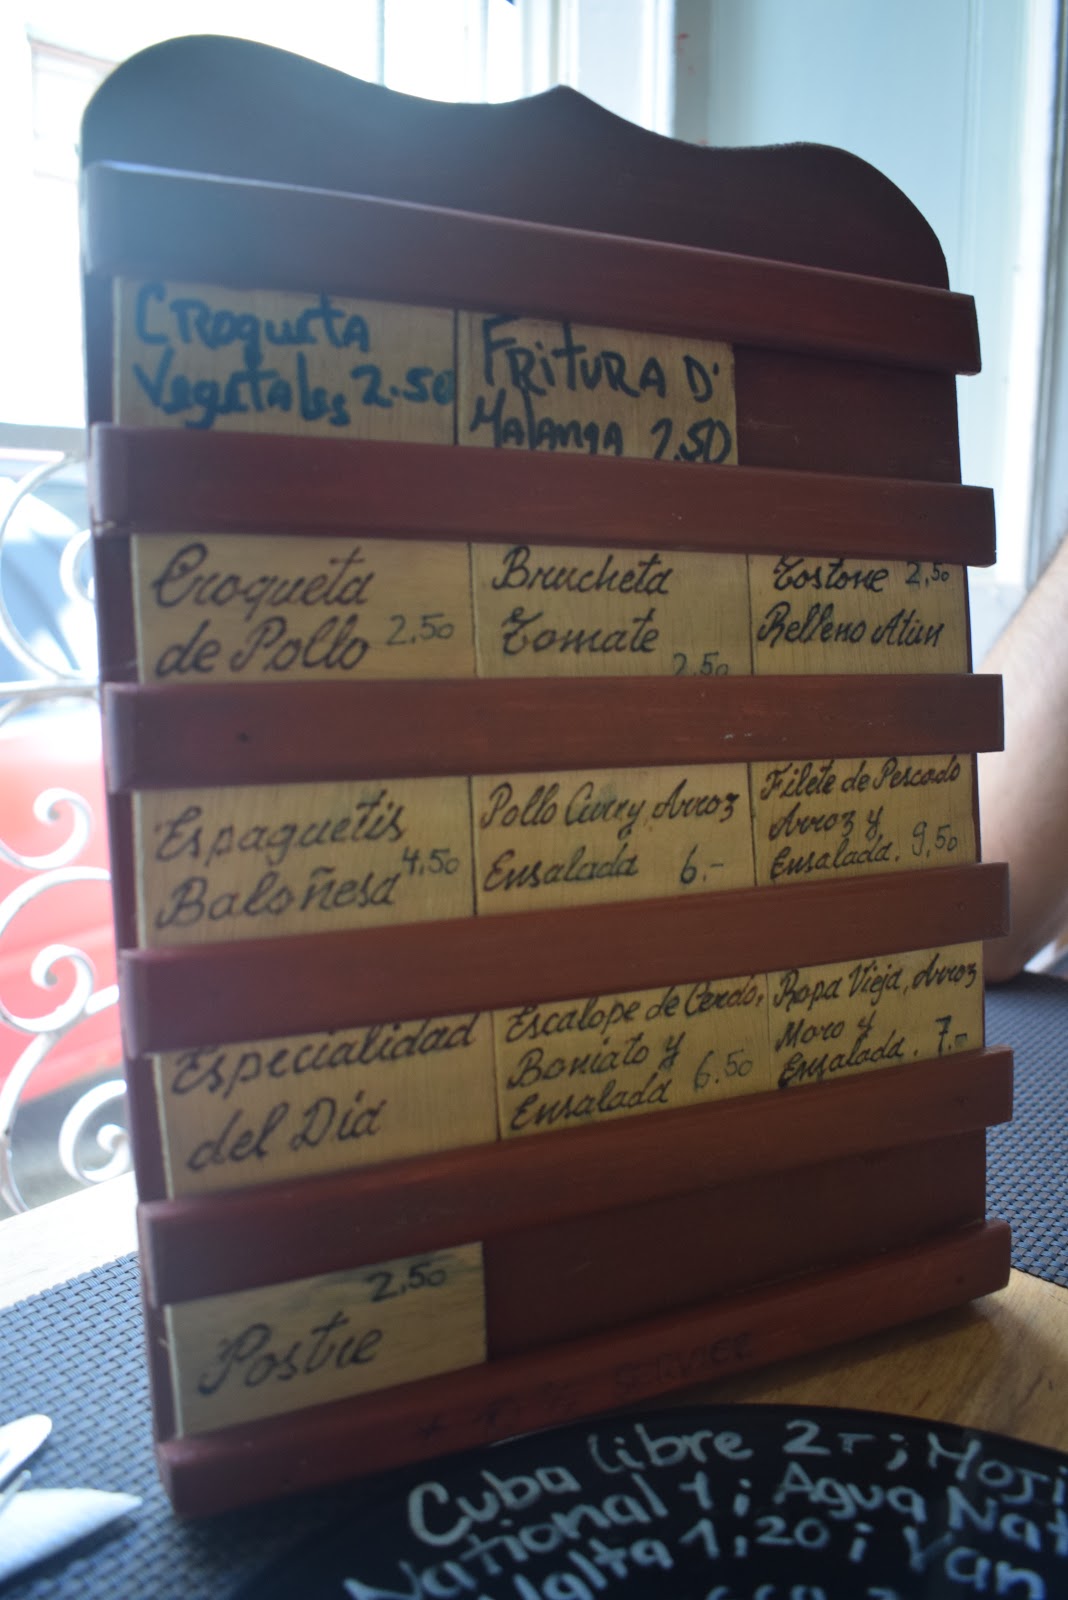 Croqueta
Vegetales 2.50
Fritura D'
Malanga 2.50
Croqueta
de Pollo 2.50
Brucheta
Tomate
2.50
Tostone 2,50
Relleno Atún
Espaguetis
Baloñesa 4,50
Pollo Curry Arroz
Ensalada 6.-
Filete de Pescado
Arroz y
Ensalada. 9,50
Especialidad
del Día
Escalope de Cerdo,
Boniato y
Ensalada 6.50
Ropa Vieja, Arroz
Moro y
Ensalada. 7.-
2,50
Postre
SERVICE
Cuba libre 2 ; Moji
National 1 ; Agua Nat
Malta 1,20 ; Van